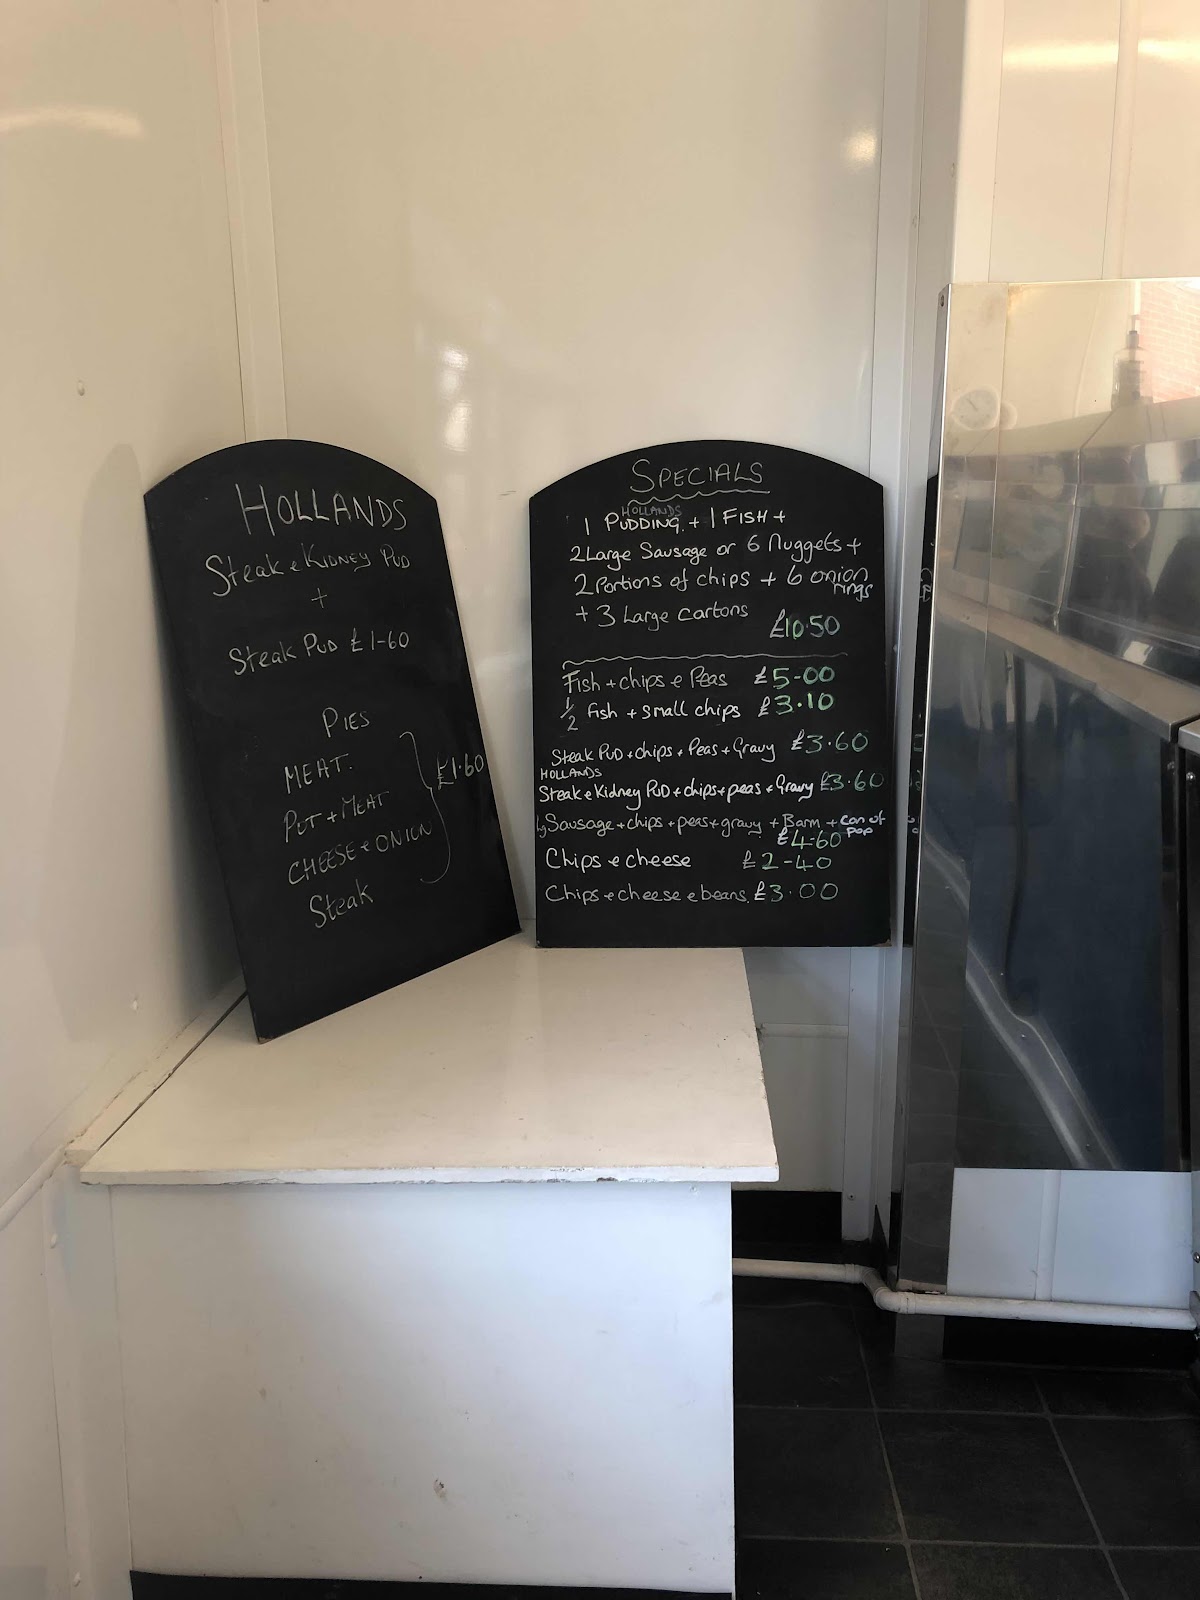 HOLLANDS
Steak e KIDNEY PUD
+
Steak PUD £1-60
PIES
MEAT.
POT + MEAT
CHEESE e ONION
Steak
£1.60
SPECIALS
HOLLANDS
1 PUDDING + 1 FISH +
2 Large Sausage or 6 Nuggets +
2 Portions of chips + 6 onion
rings
+ 3 Large cartons
£10.50
Fish + chips e Peas £5-00
1/2 fish + small chips £3.10
Steak PUD + chips + Peas + Gravy £3.60
HOLLANDS
Steak e Kidney PUD + chips + peas + Gravy £3.60
Lg Sausage + chips + peas + gravy + Barm + can of
pop
£4-60
Chips e cheese £2-40
Chips e cheese e beans. £3.00